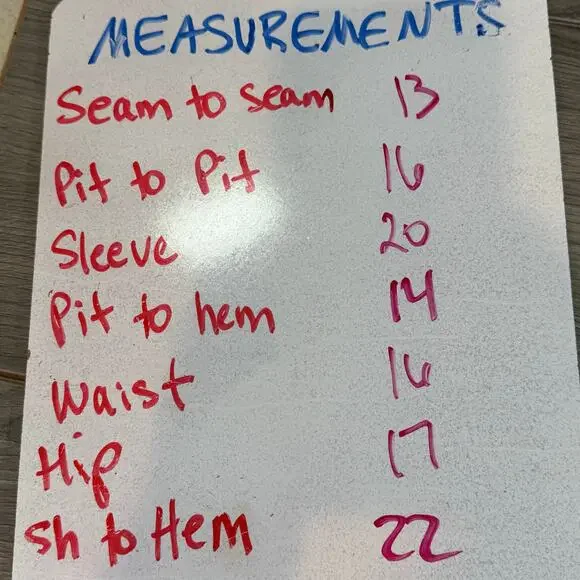 MEASUREMENTS
Seam to seam 13
Pit to Pit 16
Sleeve 20
Pit to hem 14
Waist 16
Hip 17
sh to Hem 22